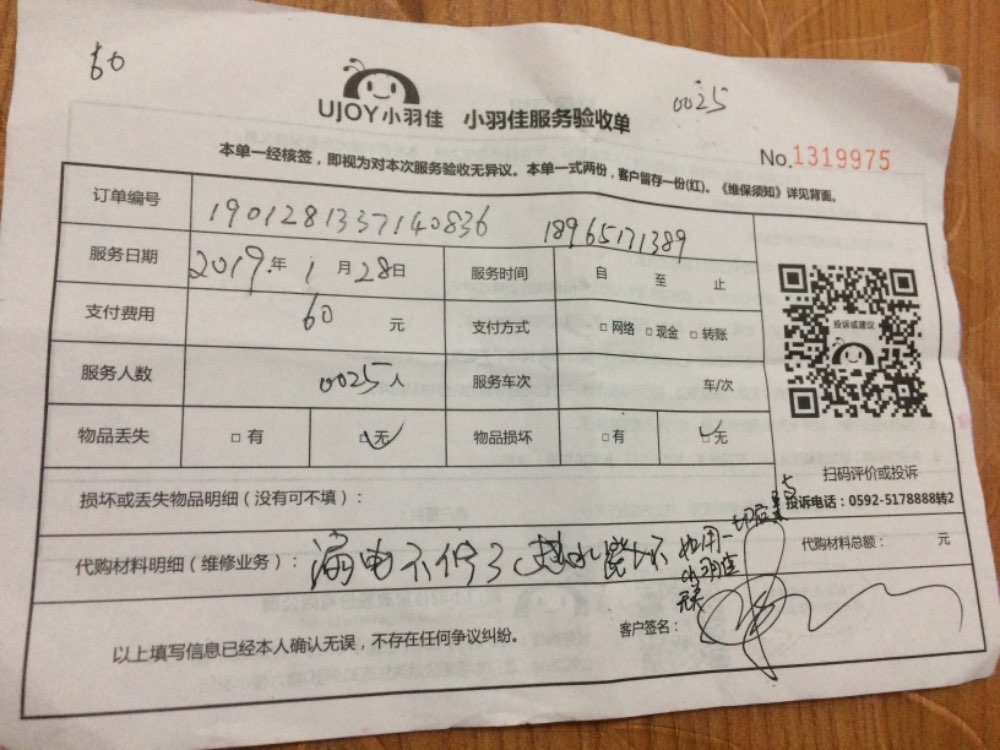 60
0025
UJOY小羽佳 小羽佳服务验收单
No.1319975
本单一经核签，即视为对本次服务验收无异议。本单一式两份，客户留存一份(红)。《维保须知》详见背面。
订单编号 1901281337140836 18965171389
服务日期 2019.年 1 月 28日 服务时间 自 至 止
支付费用 60 元 支付方式 □网络 □现金 □转账
服务人数 0025人 服务车次 车/次
物品丢失 □有 □无 物品损坏 □有 □无
投诉或建议
扫码评价或投诉
投诉电话：0592-5178888转2
损坏或丢失物品明细（没有可不填）：
代购材料明细（维修业务）： 漏电不修了 如用一切后果与小羽佳无关
代购材料总额： 元
以上填写信息已经本人确认无误，不存在任何争议纠纷。
客户签名：